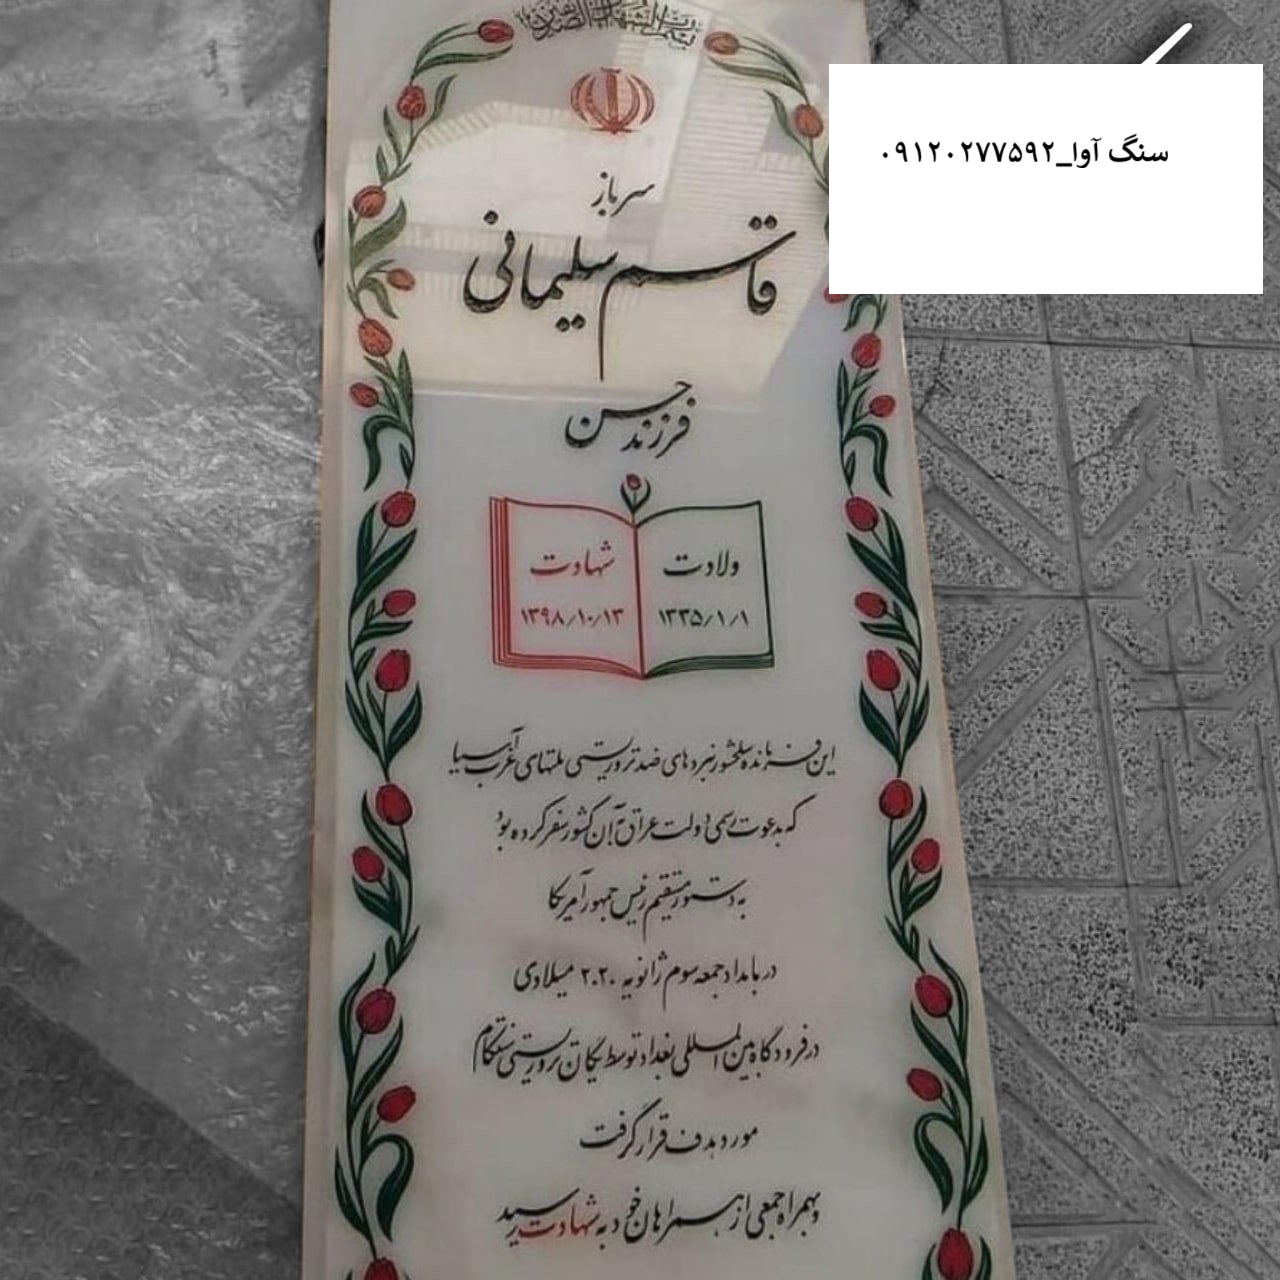 بسم رب الشهداء و الصدیقین
سنگ آوا_۰۹۱۲۰۲۷۷۵۹۲
سرباز
قاسم سلیمانی
فرزند حسن
ولادت
۱۳۳۵/۱/۱
شهادت
۱۳۹۸/۱۰/۱۳
این فرمانده سلحشور نبردهای ضد تروریستی ملتهای غرب آسیا
که بدعوت رسمی دولت عراق به آن کشور سفر کرده بود
به دستور مستقیم رئیس جمهور آمریکا
در بامداد جمعه سوم ژانویه ۲۰۲۰ میلادی
در فرودگاه بین المللی بغداد توسط یگان تروریستی سنتکام
مورد هدف قرار گرفت
و بهمراه جمعی از همراهان خود به شهادت رسید